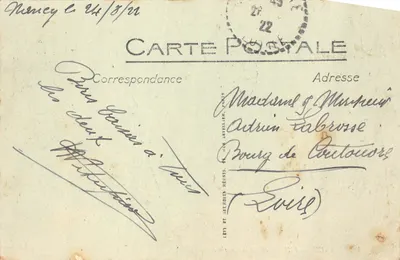 Nancy le 24/8/22
22
CARTE POSTALE
Correspondance
Adresse
Bons baisers à tous
les deux
Madame & Monsieur
Adrien Labrosse
Bourg de Coutouvre
(Loire)